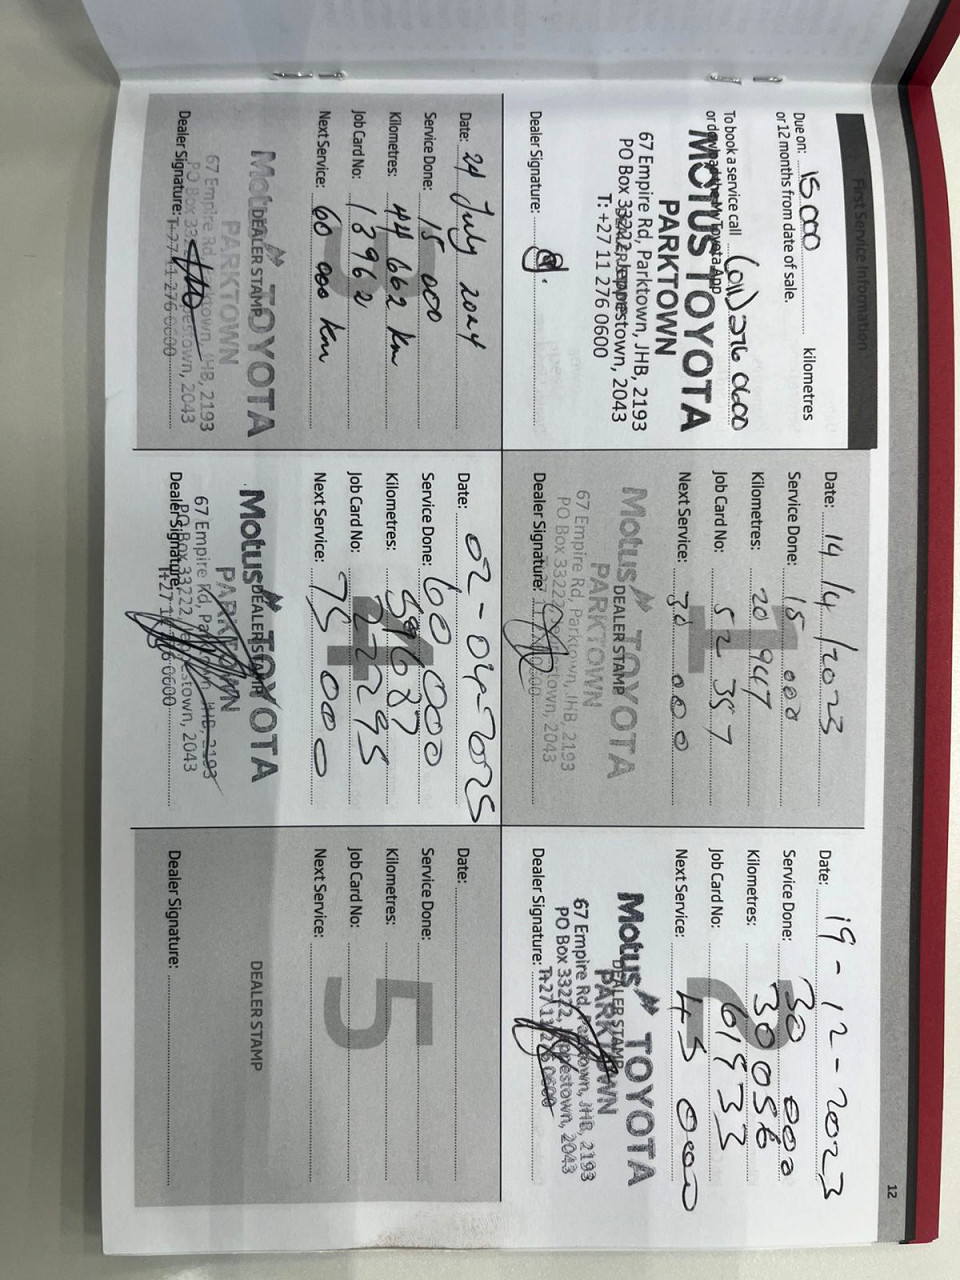 12
First Service Information
Due on: 15 000 kilometres
or 12 months from date of sale.
To book a service call (011) 276 0600
or download the MyToyota App
MOTUS TOYOTA
PARKTOWN
67 Empire Rd, Parktown, JHB, 2193
PO Box 33222, Jeppestown, 2043
T: +27 11 276 0600
Dealer Signature:
1
Date: 14/4/2023
Service Done: 15 000
Kilometres: 20 947
Job Card No: 52 357
Next Service: 30 000
DEALER STAMP
Motus TOYOTA
PARKTOWN
67 Empire Rd, Parktown, JHB, 2193
PO Box 33222, Jeppestown, 2043
Dealer Signature:
2
Date: 19-12-2023
Service Done: 30 000
Kilometres: 30056
Job Card No: 61933
Next Service: 45 000
DEALER STAMP
Motus TOYOTA
PARKTOWN
67 Empire Rd, Parktown, JHB, 2193
PO Box 33222, Jeppestown, 2043
T+27 11 276 0600
Dealer Signature:
3
Date: 24 July 2024
Service Done: 15 000
Kilometres: 44 662 km
Job Card No: 13962
Next Service: 60 000 km
DEALER STAMP
Motus TOYOTA
PARKTOWN
67 Empire Rd, Parktown, JHB, 2193
PO Box 33222, Jeppestown, 2043
T+27 11 276 0600
Dealer Signature:
4
Date: 02-04-2025
Service Done: 60 000
Kilometres: 59687
Job Card No: 22295
Next Service: 75 000
DEALER STAMP
Motus TOYOTA
PARKTOWN
67 Empire Rd, Parktown, JHB, 2193
PO Box 33222, Jeppestown, 2043
T+27 11 276 0600
Dealer Signature:
5
Date:
Service Done:
Kilometres:
Job Card No:
Next Service:
DEALER STAMP
Dealer Signature: